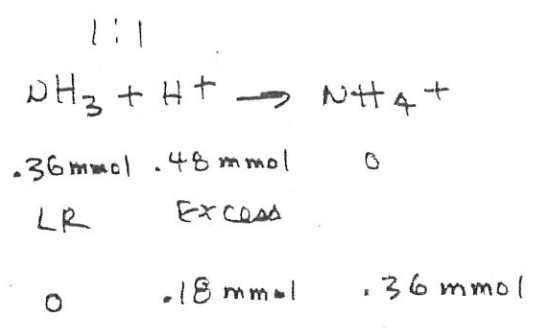 1:1
NH3 + H+ → NH4+
.36 mmol .48 mmol 0
LR Excess
0 .18 mmol .36 mmol